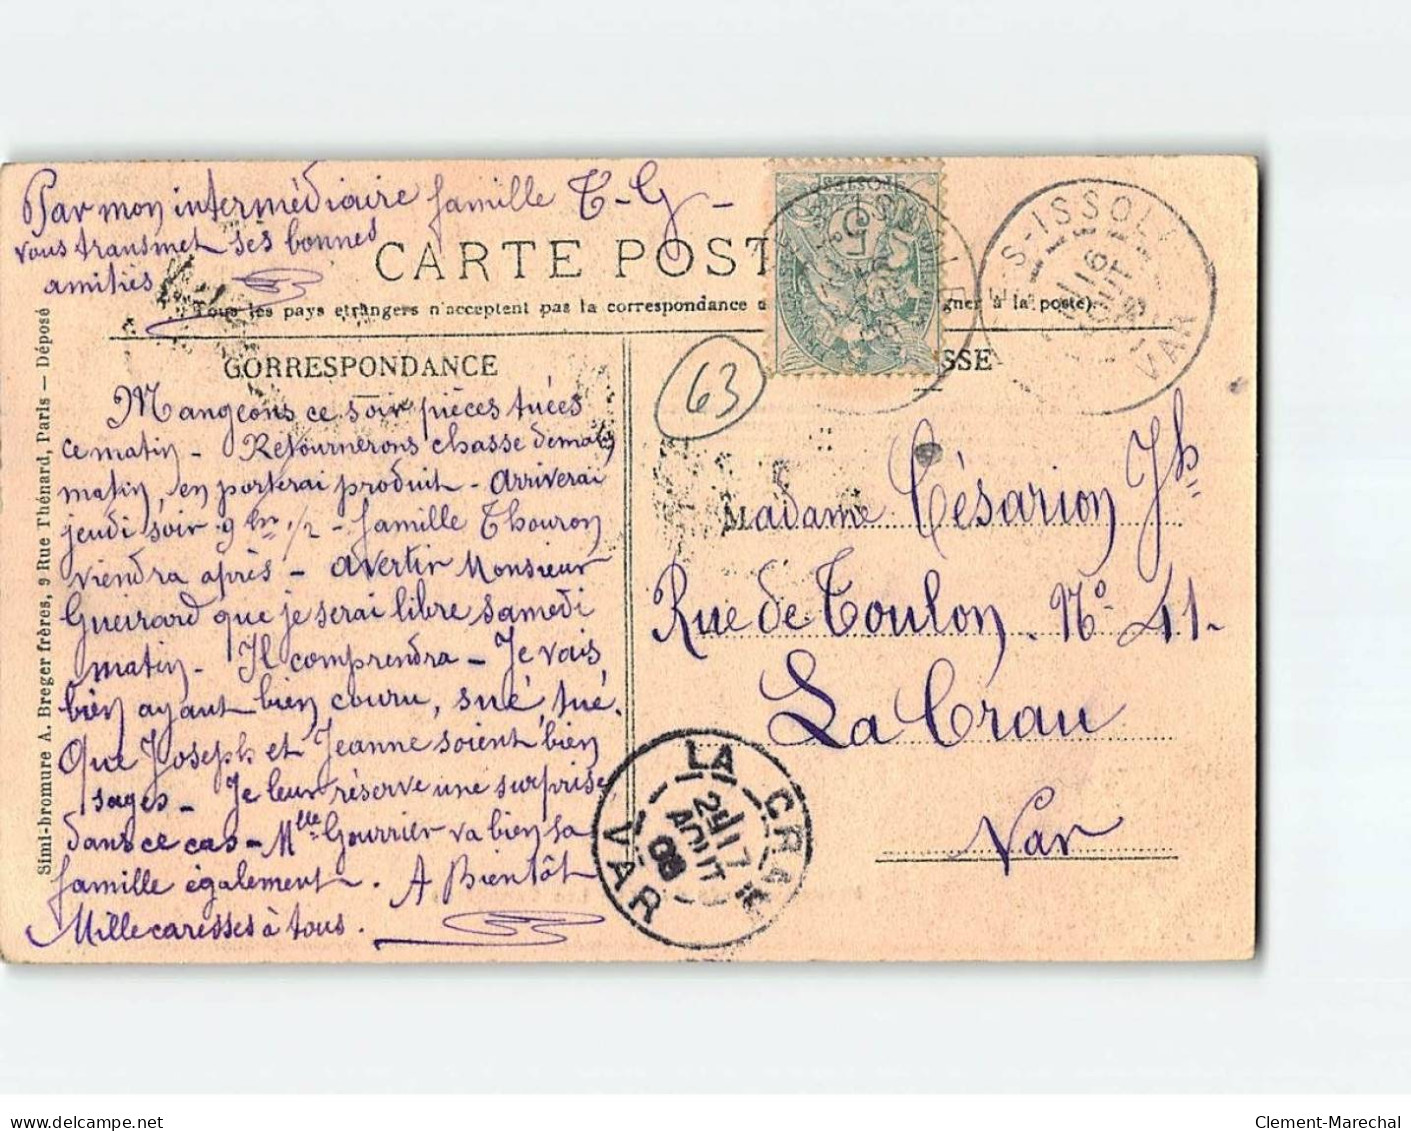 Par mon intermédiaire famille T-G-
vous transmet ses bonnes
amitiés
CARTE POST
Tous les pays étrangers n'acceptent pas la correspondance a gner à la poste).
CORRESPONDANCE
SSE
63
Mangeons ce soir pièces tuées
ce matin - Retournerons chasse demain
matin, en porterai produit - Arriverai
jeudi soir 9 hrs 1/2 - famille Thouron
viendra après - avertir Monsieur
Gueirard que je serai libre samedi
matin - Il comprendra - Je vais
bien ayant bien couru, sué, tué.
Que Joseph et Jeanne soient bien
sages - Je leur réserve une surprise
dans ce cas - Mlle Gourrier va bien sa
famille également. A Bientôt
Mille caresses à tous.
Madame Césarion Jh
Rue de Toulon. No 41-
La Crau
Var
S-ISSOL
16
VAR
POSTES
5
LA CRAU
2E
17
AOUT
08
VAR
Simi-bromure A. Breger frères, 9 Rue Thénard, Paris — Déposé
delcampe.net
Clement-Marechal